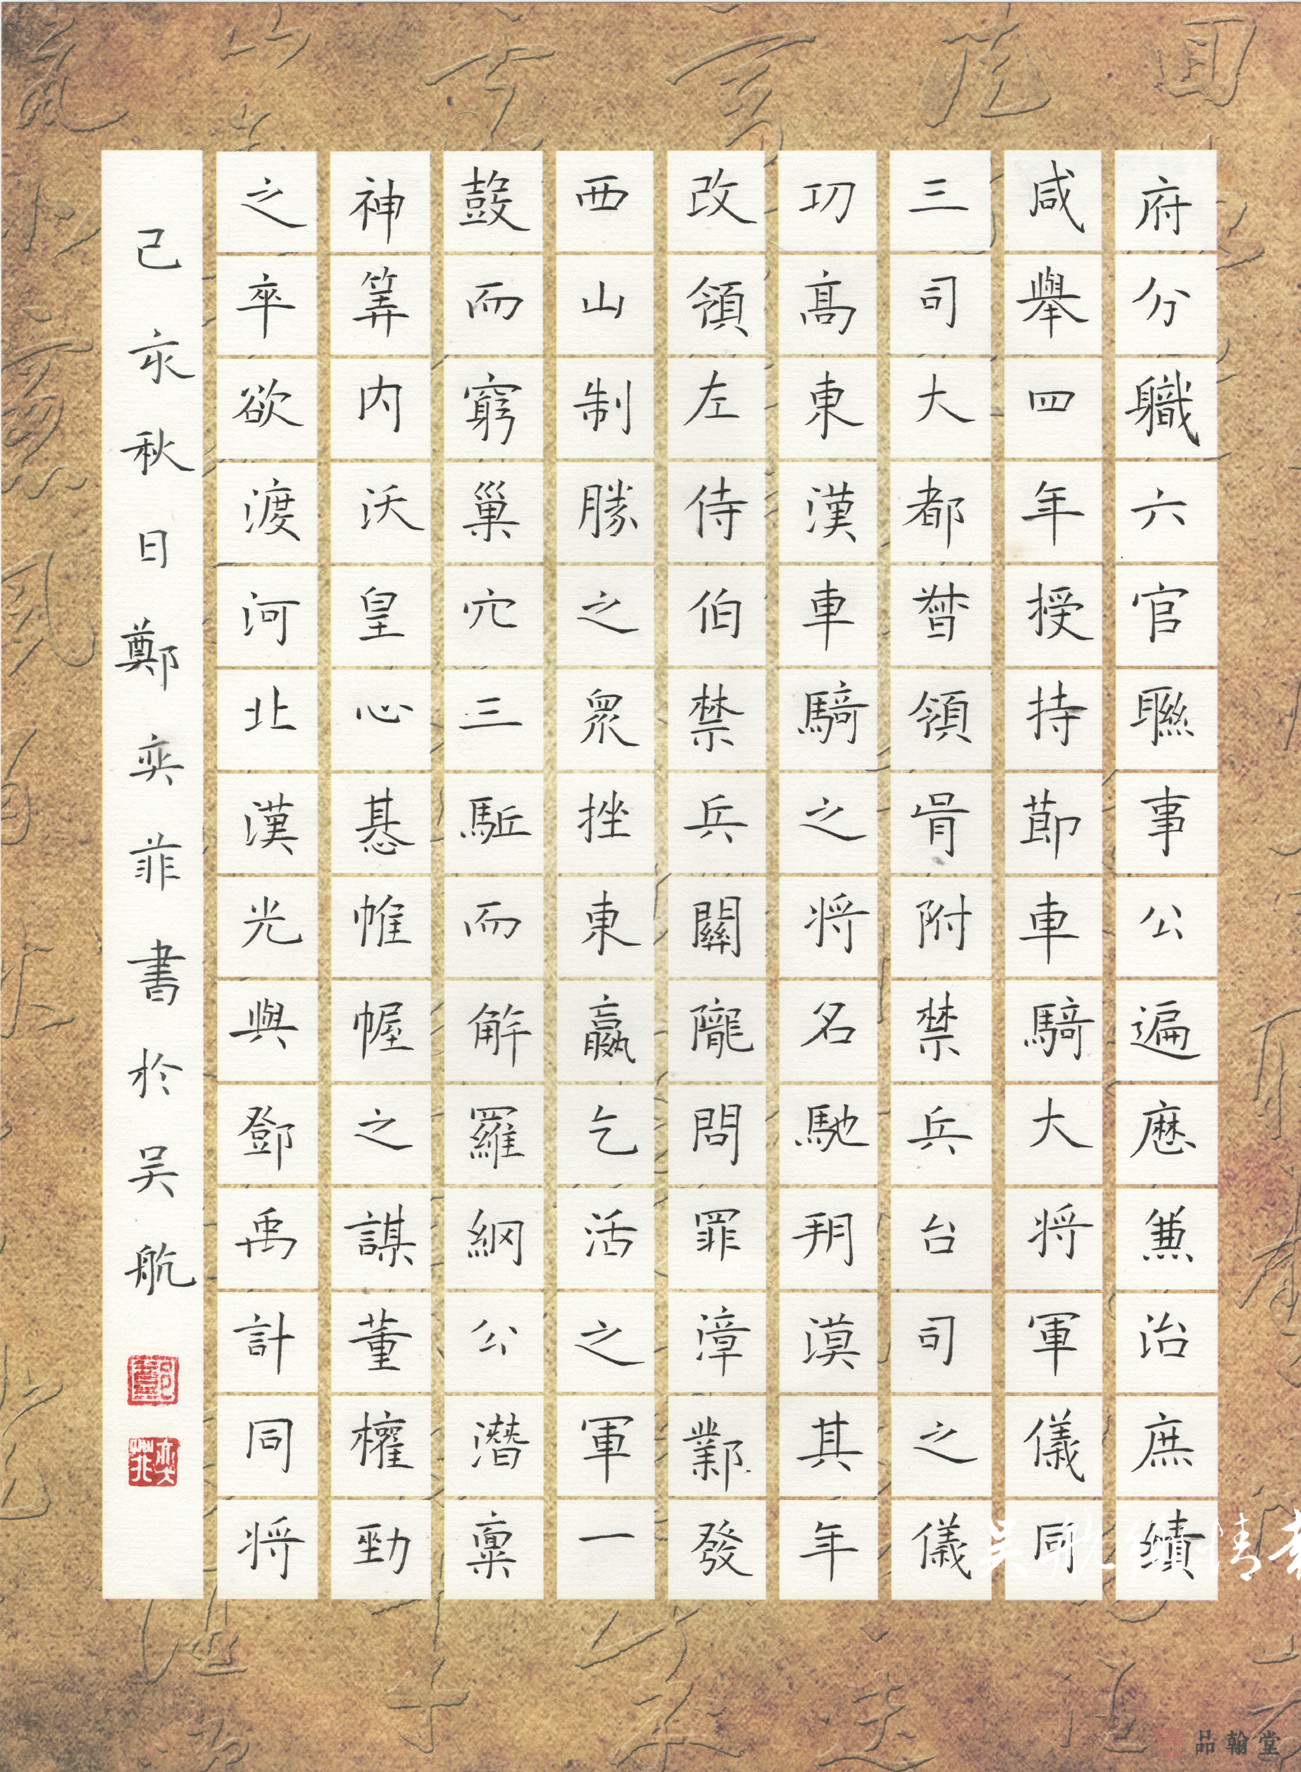 府分職六官聯事公遍歷兼治庶績
咸舉四年授持節車騎大将軍儀同
三司大都督領胥附禁兵台司之儀
功高東漢車騎之将名馳朔漠其年
改領左侍伯禁兵關隴問罪漳鄴發
西山制勝之衆挫東嬴乞活之軍一
鼓而窮巢穴三駈而解羅網公潛稟
神筭内沃皇心惎帷幄之謀董權勁
之卒欲渡河北漢光與鄧禹計同将
己亥秋日鄭奕菲書於吴航
品翰堂